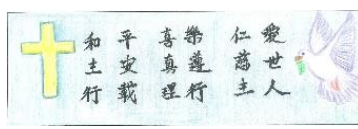 愛世人
仁慈主
樂遵行
喜真理
平安載
和主行